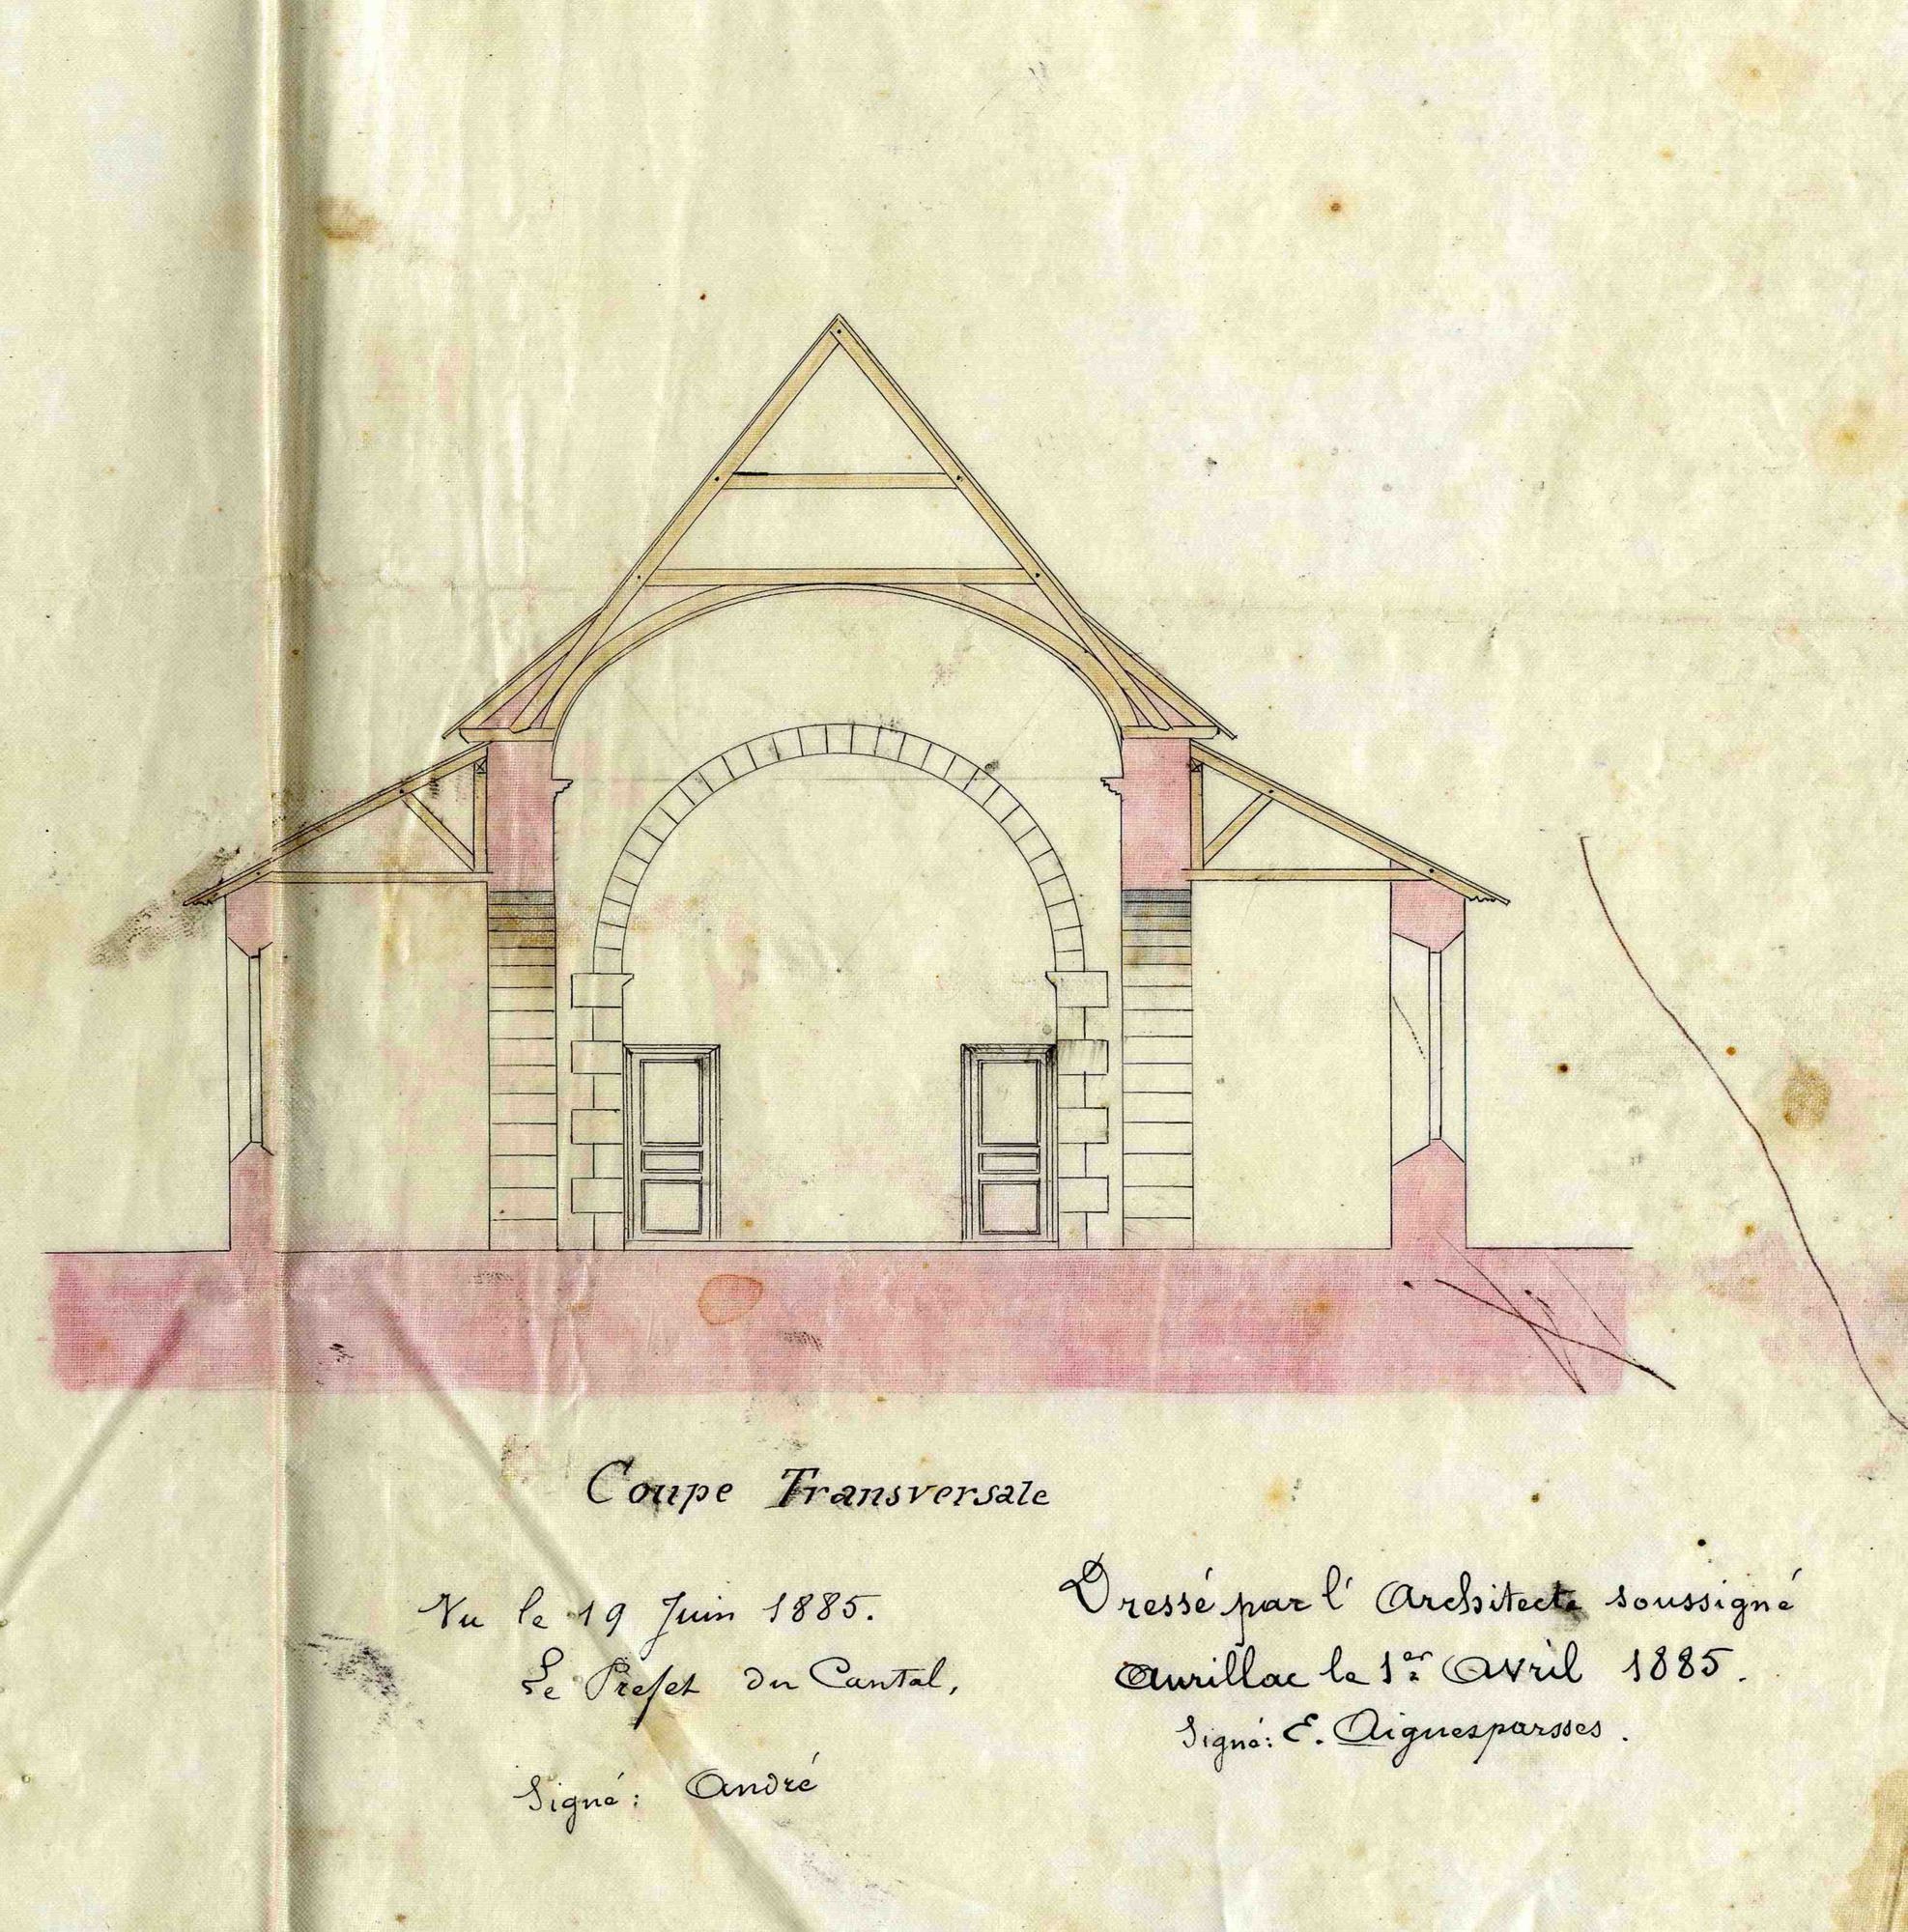 Coupe Transversale
Vu le 19 Juin 1885.
Le Prefet du Cantal,
Signé: André
Dressé par l'Architecte soussigné
Aurillac le 1er Avril 1885.
Signé: E. Aiguesparsses.